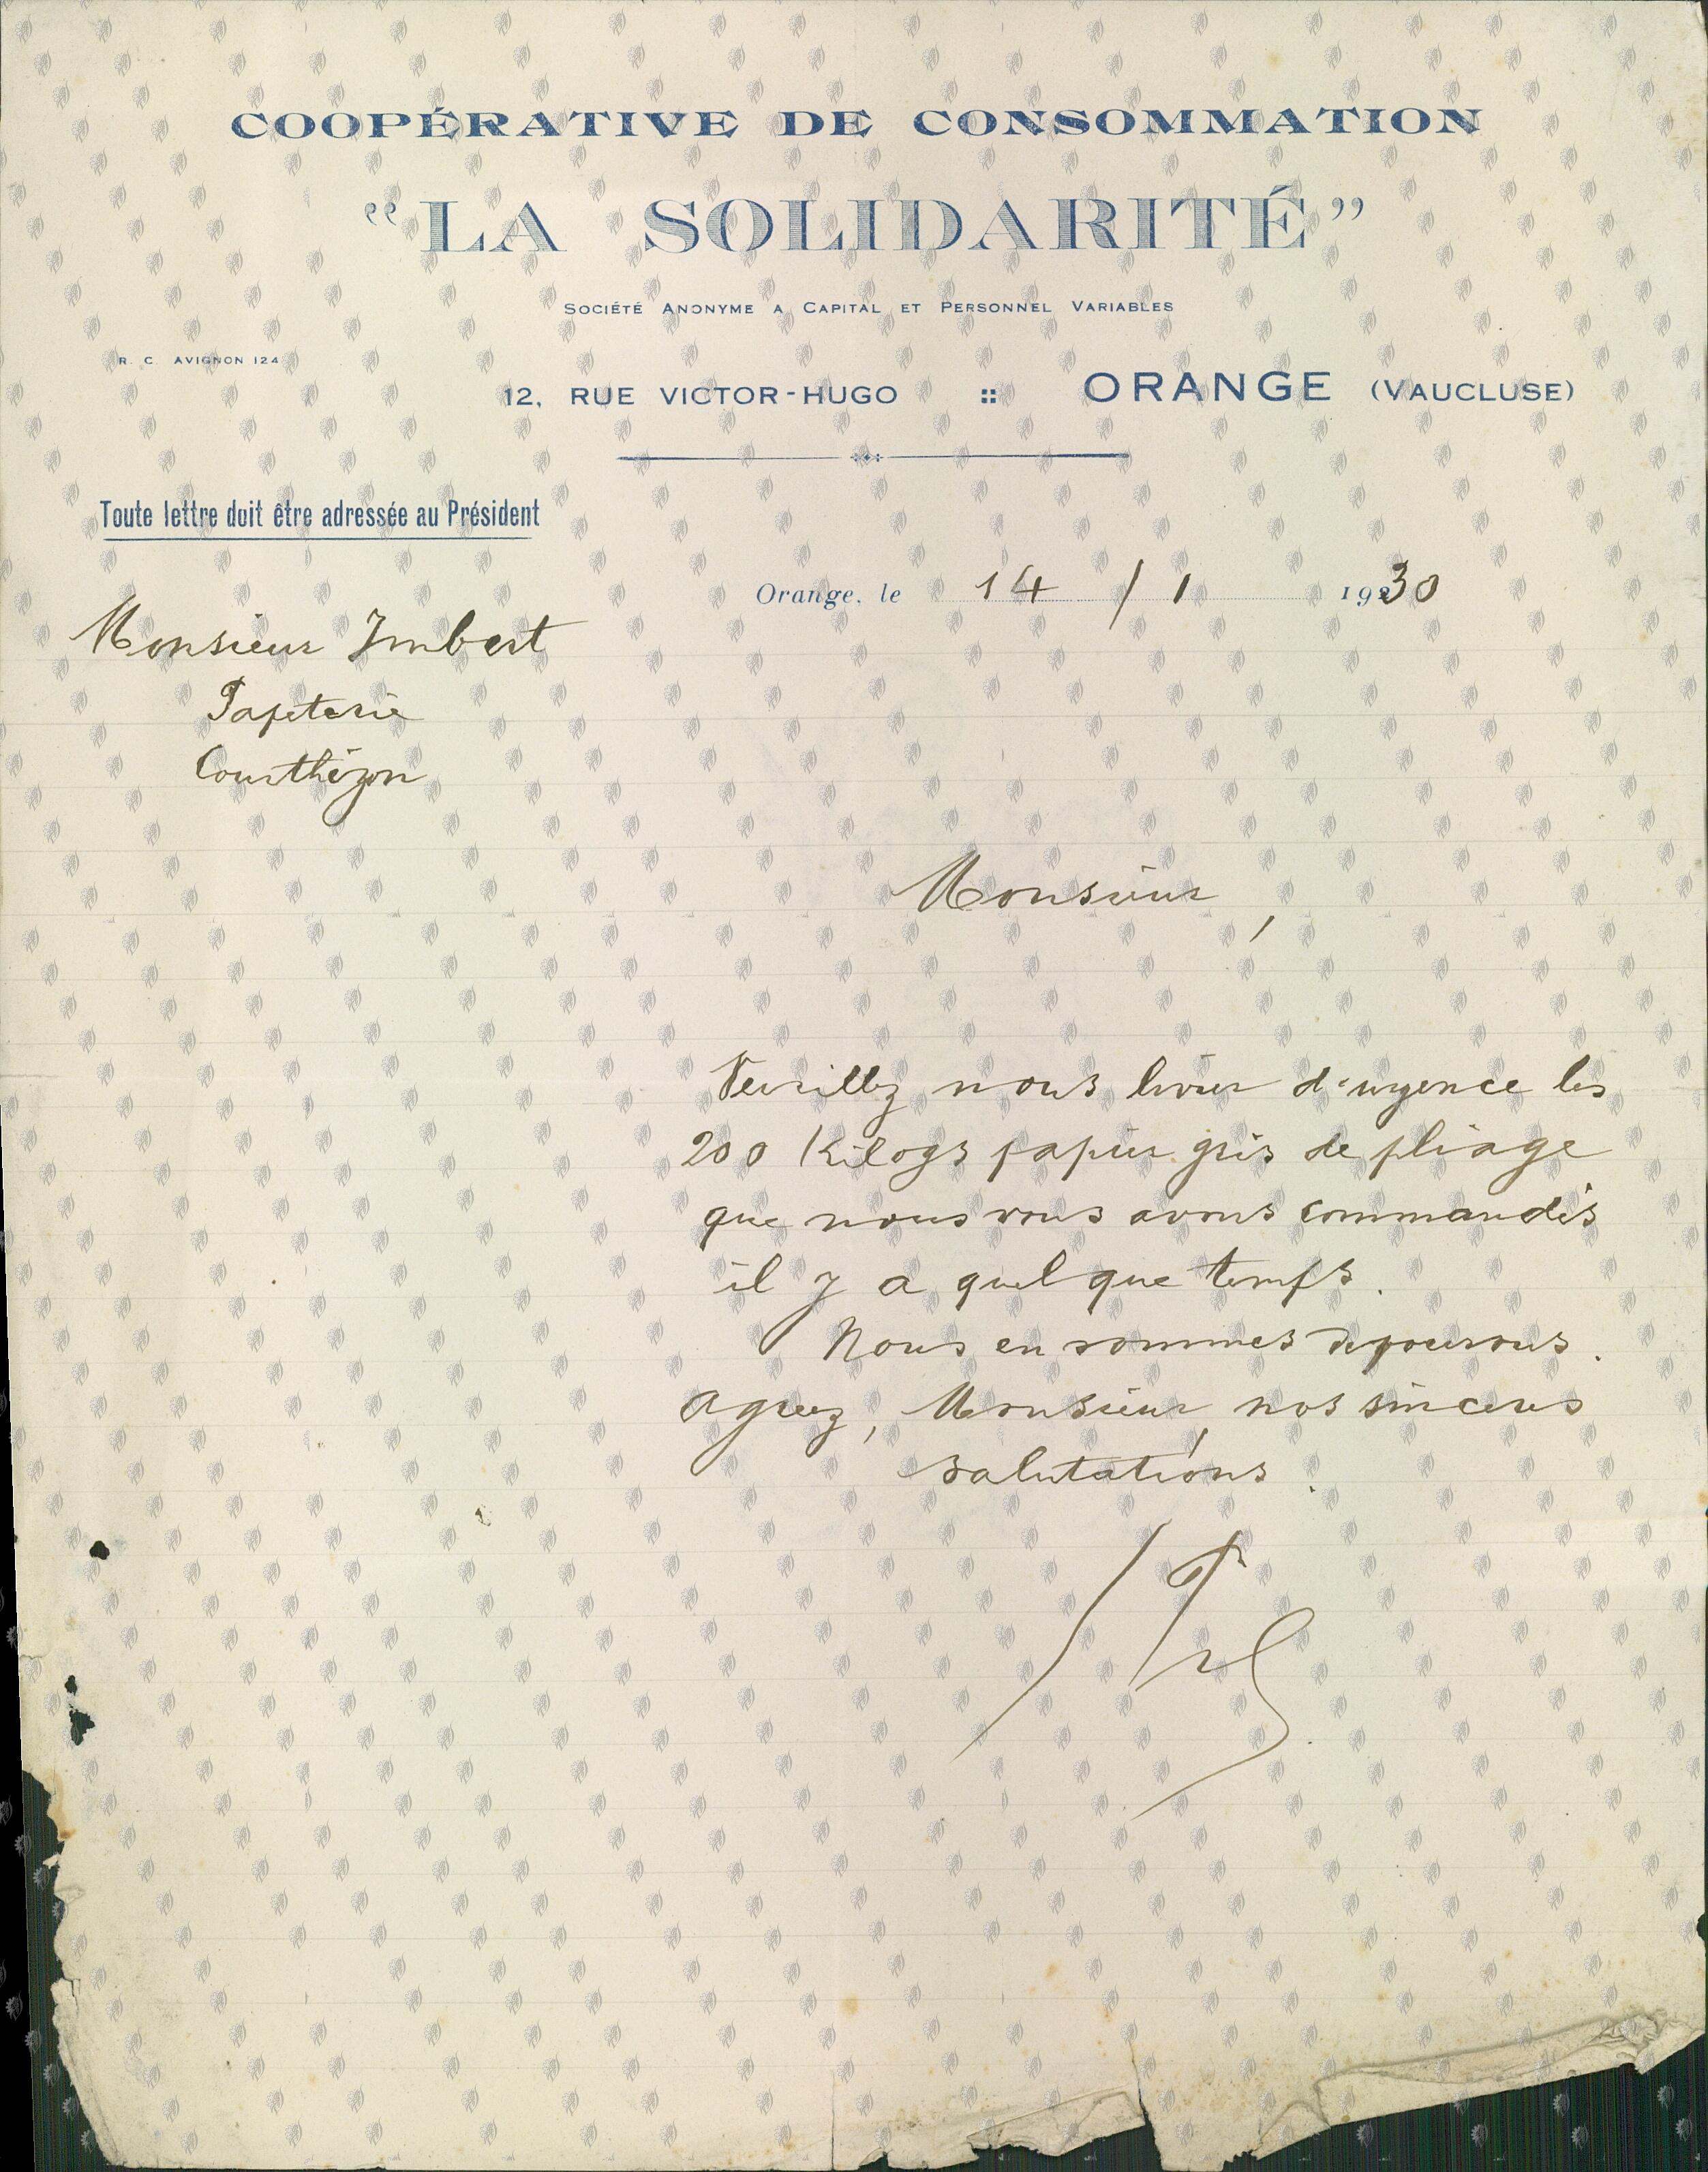 COOPÉRATIVE DE CONSOMMATION
"LA SOLIDARITÉ"
SOCIÉTÉ ANONYME A CAPITAL ET PERSONNEL VARIABLES
R. C. AVIGNON 124
12, RUE VICTOR-HUGO :: ORANGE (VAUCLUSE)
Toute lettre doit être adressée au Président
Orange, le 14 / 1 1930
Monsieur Imbert
Papeterie
Courthézon
Monsieur,
Veuillez nous livrer d'urgence les
200 Kilogs papier gris de pliage
que nous vous avons commandés
il y a quelque temps.
Nous en sommes depourvus.
Agreez, Monsieur, nos sinceres
salutations.